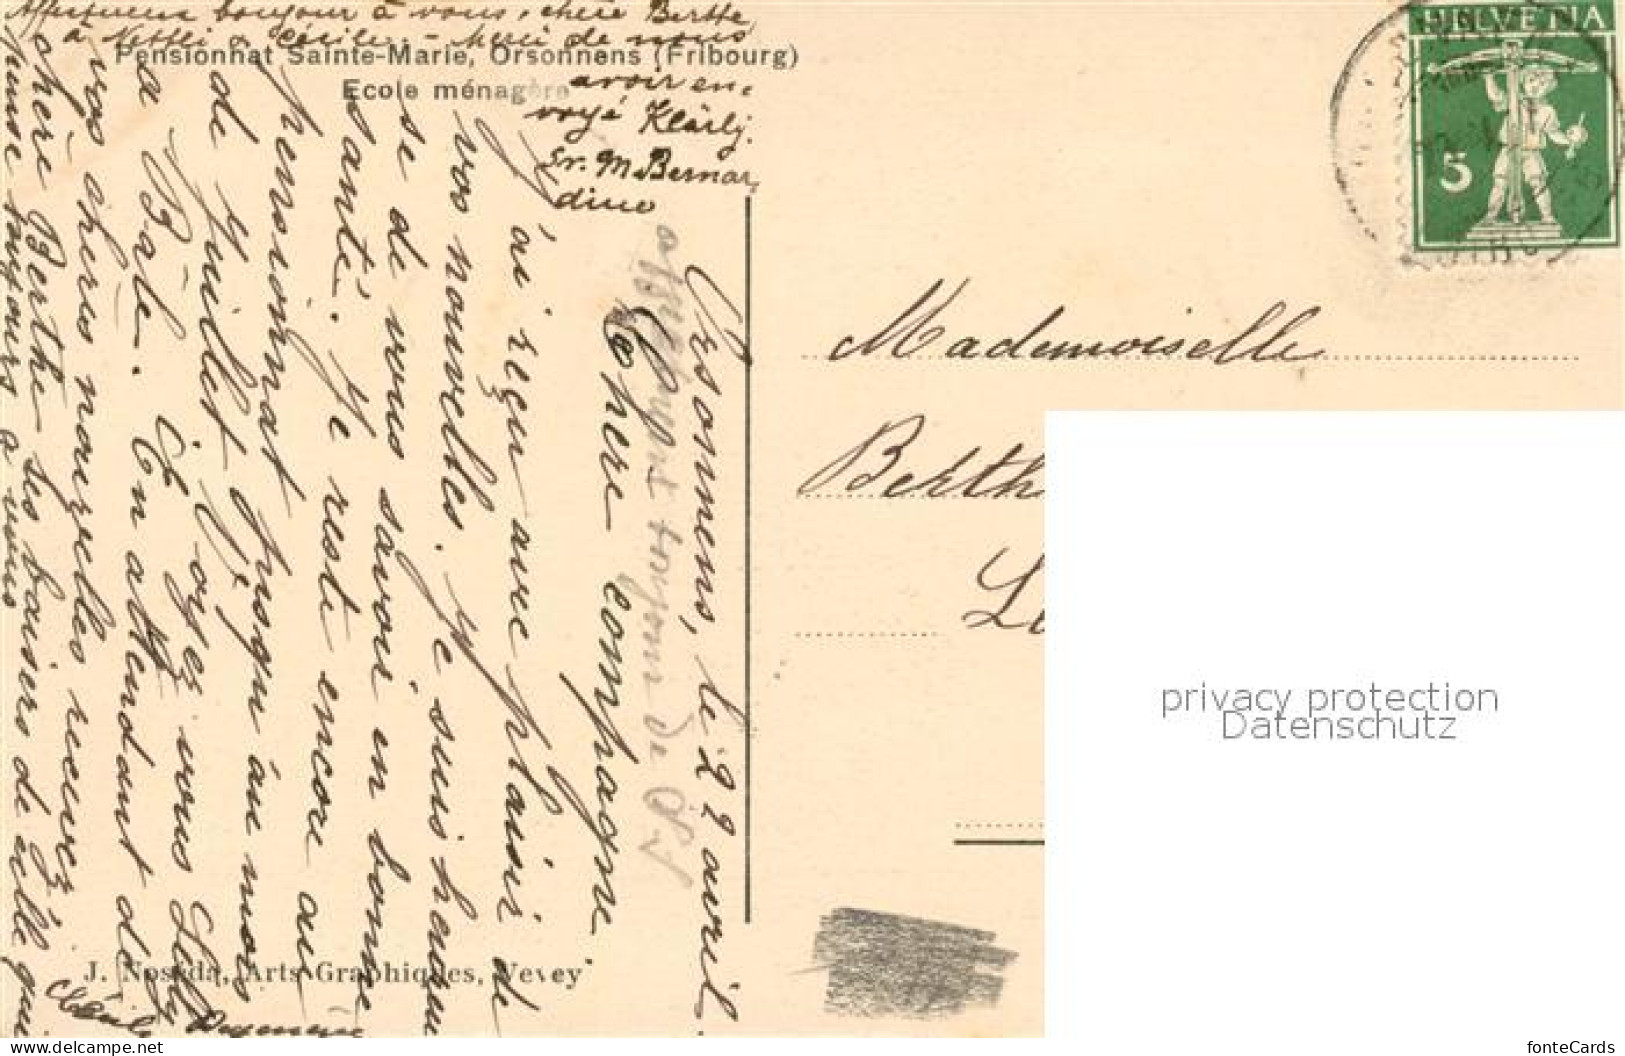 Affectueux bonjour à vous, chère Berthe,
à Nettli & Cécile. - Merci de nous
avoir en-
voyé Klärlj.
Sr. M. Bernar-
dino
Pensionnat Sainte-Marie, Orsonnens (Fribourg)
Ecole ménagère
HELVETIA
5
Orsonnens, le 29 avril.
Chère compagne
J'ai reçu avec plaisir de
vos nouvelles. Je suis heureu
se de vous savoir en bonne
santé. Je reste encore au
pensionnat jusqu'au mois
de Juillet. Croyez vous Lilly
à Bâle. En attendant de
vos chères nouvelles recevez
chère Berthe les baisers de celle qui
pense toujours à vous
Cécile
J. Noseda, Arts Graphiques, Vevey
Mademoiselle
Berth
privacy protection
Datenschutz
www.delcampe.net
fonteCards